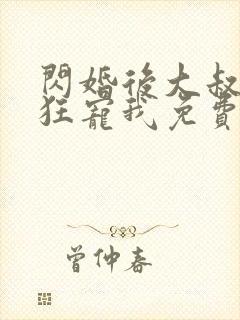 閃婚後大叔
狂寵我免費
曾仲春